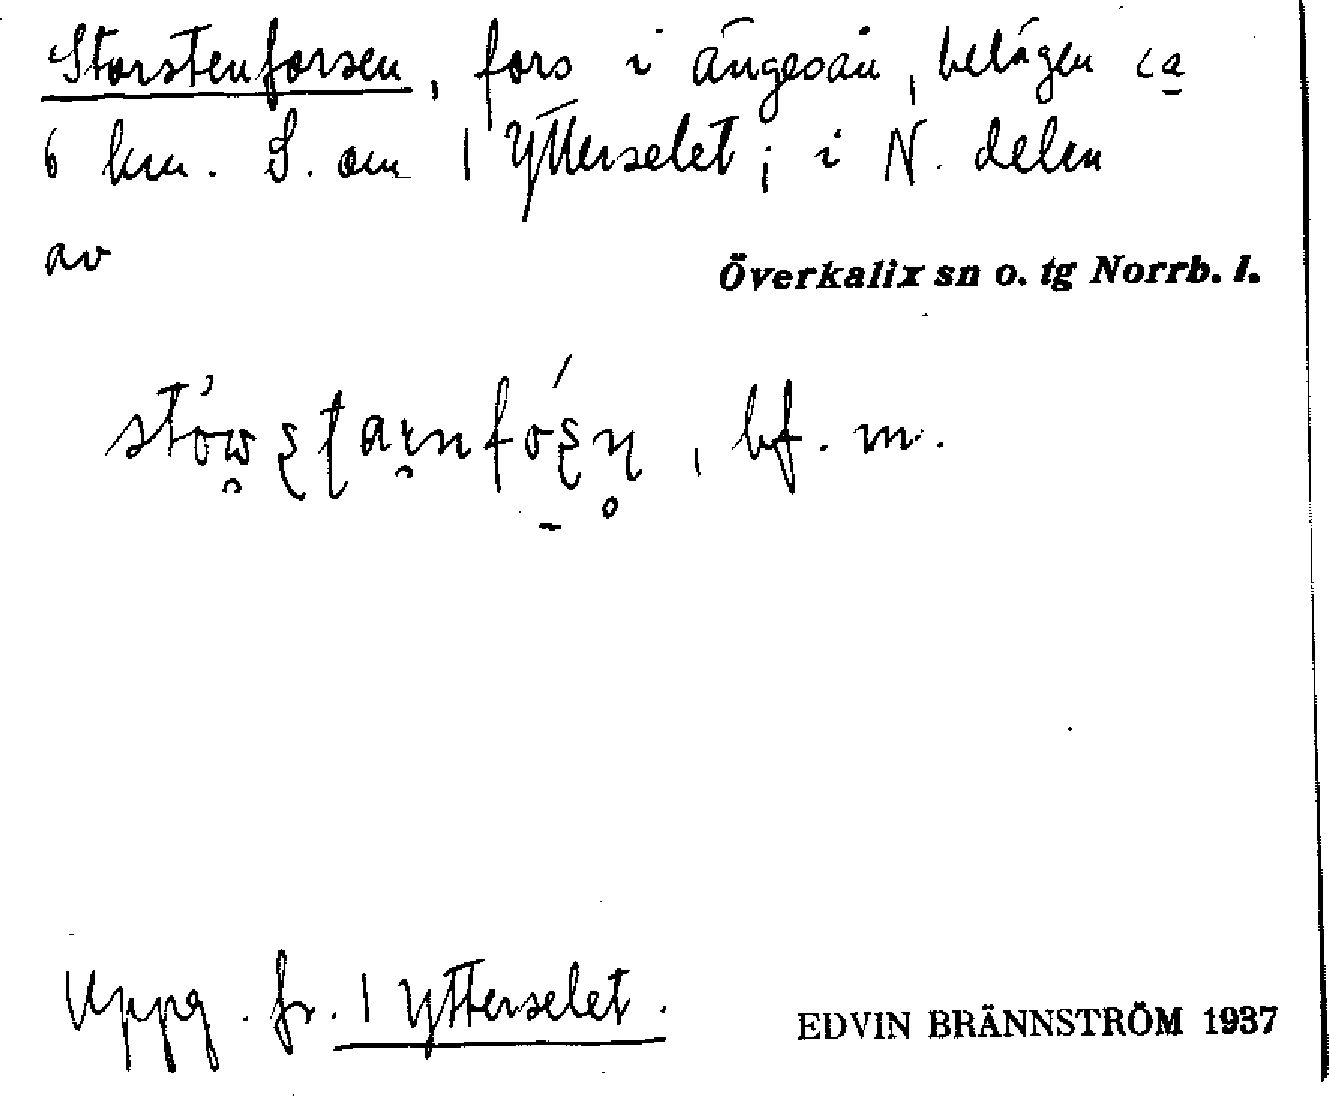 Storstenforsen, fors i Ängesån, belägen ca
6 km. S. om 1 Ytterselet; i N. delen
av
Överkalix sn o. tg Norrb. l.
, bf. m.
Uppg. fr. 1 Ytterselet.
EDVIN BRÄNNSTRÖM 1937